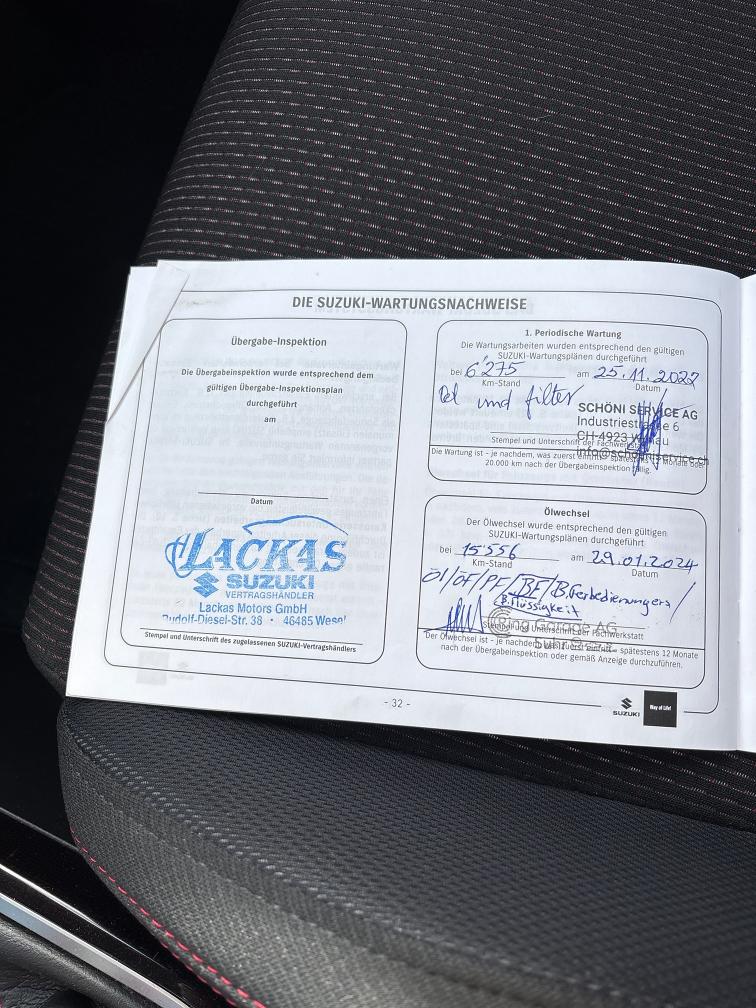 DIE SUZUKI-WARTUNGSNACHWEISE
Übergabe-Inspektion
Die Übergabeinspektion wurde entsprechend dem
gültigen Übergabe-Inspektionsplan
durchgeführt
am
Datum
LACKAS
SUZUKI
VERTRAGSHÄNDLER
Lackas Motors GmbH
Rudolf-Diesel-Str. 38 • 46485 Wesel
Stempel und Unterschrift des zugelassenen SUZUKI-Vertragshändlers
1. Periodische Wartung
Die Wartungsarbeiten wurden entsprechend den gültigen
SUZUKI-Wartungsplänen durchgeführt
bei 6'275 am 25.11.2022
Km-Stand Datum
Oel und filter
SCHÖNI SERVICE AG
Industriestrasse 6
CH-4923
info@schöniservice.ch
Stempel und Unterschrift der Fachwerkstatt
Die Wartung ist - je nachdem, was zuerst eintrifft - spätestens Monate oder
20.000 km nach der Übergabeinspektion fällig.
Ölwechsel
Der Ölwechsel wurde entsprechend den gültigen
SUZUKI-Wartungsplänen durchgeführt
bei 15'556 am 29.01.2024
Km-Stand Datum
Öl/ÖF/PF/BF/
B.Flüssigkeit
Ring Garage AG
Stempel und Unterschrift der Fachwerkstatt
Der Ölwechsel ist - je nachdem, was zuerst eintrifft - spätestens 12 Monate
nach der Übergabeinspektion oder gemäß Anzeige durchzuführen.
- 32 -
SUZUKI
Way of Life!